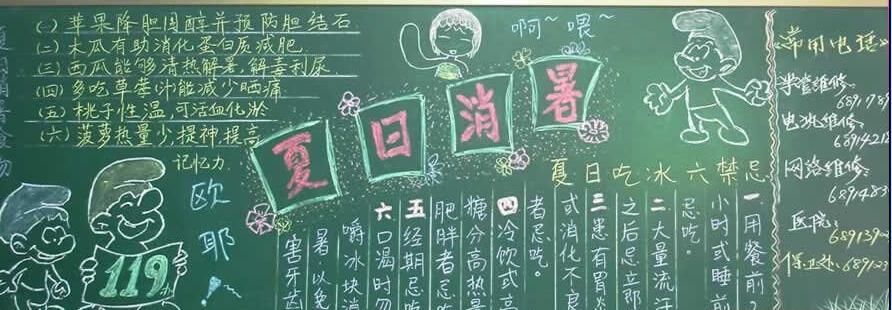 (一) 苹果降胆固醇并预防胆结石
(二) 木瓜有助消化蛋白质减肥
(三) 西瓜能够清热解暑,解毒利尿
(四) 多吃草莓汁能减少晒痛
(五) 桃子性温,可活血化淤
(六) 菠萝热量少提神提高
记忆力
欧
耶
!
119
啊~喂~
夏日消暑
夏日吃冰六禁忌
一用餐前
小时或睡前
忌吃。
二大量流汗
之后忌立即
三患有胃炎
或消化不良
者忌吃。
四冷饮或高
糖分高热量
肥胖者忌吃
五经期忌吃
六口渴时勿
嚼冰块消
暑以免
害牙齿
常用电话
学管维修:
电视维修:
网络维修:
医院:
保卫处: